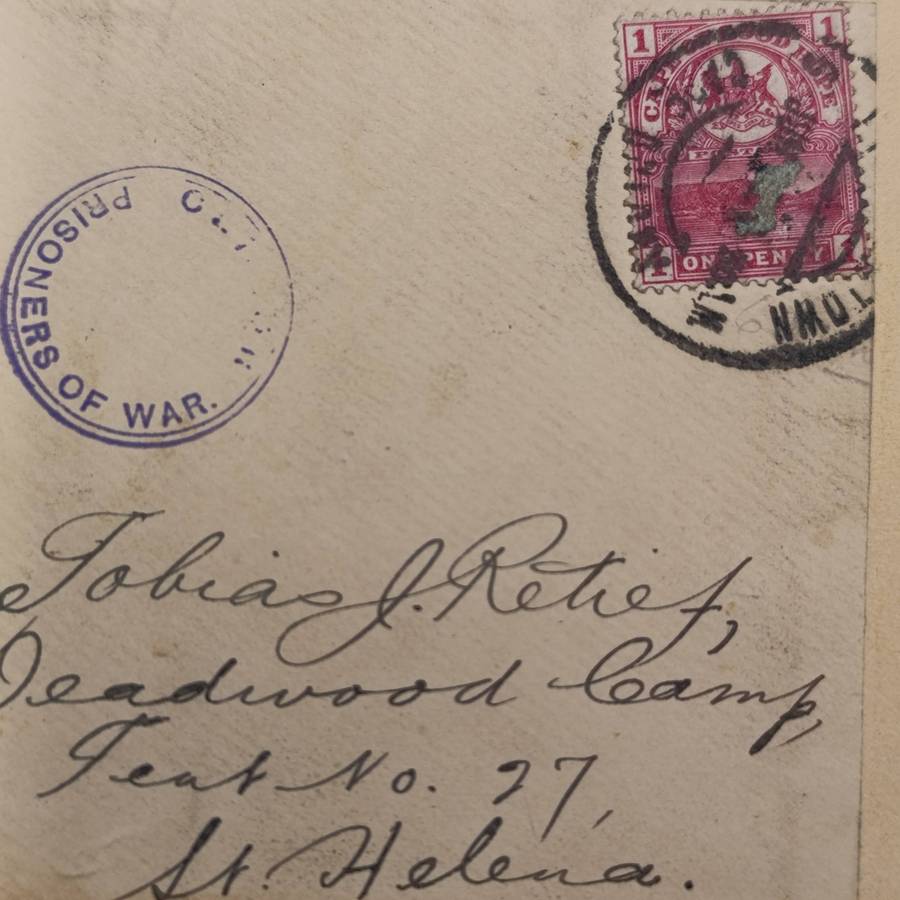 1 1
CAPE OF GOOD HOPE
POSTAGE
1 ONE PENNY 1
PRISONERS OF WAR.
Tobias J. Retief,
Deadwood Camp,
Tent No. 27,
St. Helena.